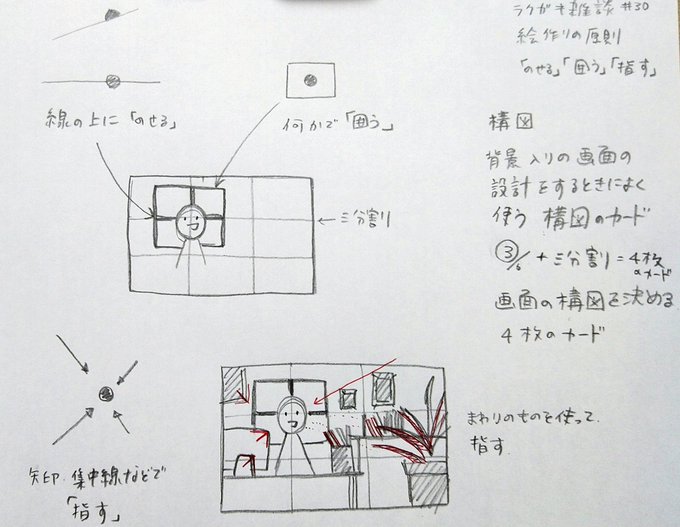 ラクガキ雑談 #30
絵作りの原則
「のせる」「囲う」「指す」
線の上に「のせる」
何かで「囲う」
三分割
構図
背景入りの画面の
設計をするときによく
使う構図のカード
③/6 + 三分割 = 4枚
のカード
画面の構図を決める
4枚のカード
矢印・集中線などで
「指す」
まわりのものを使って
指す